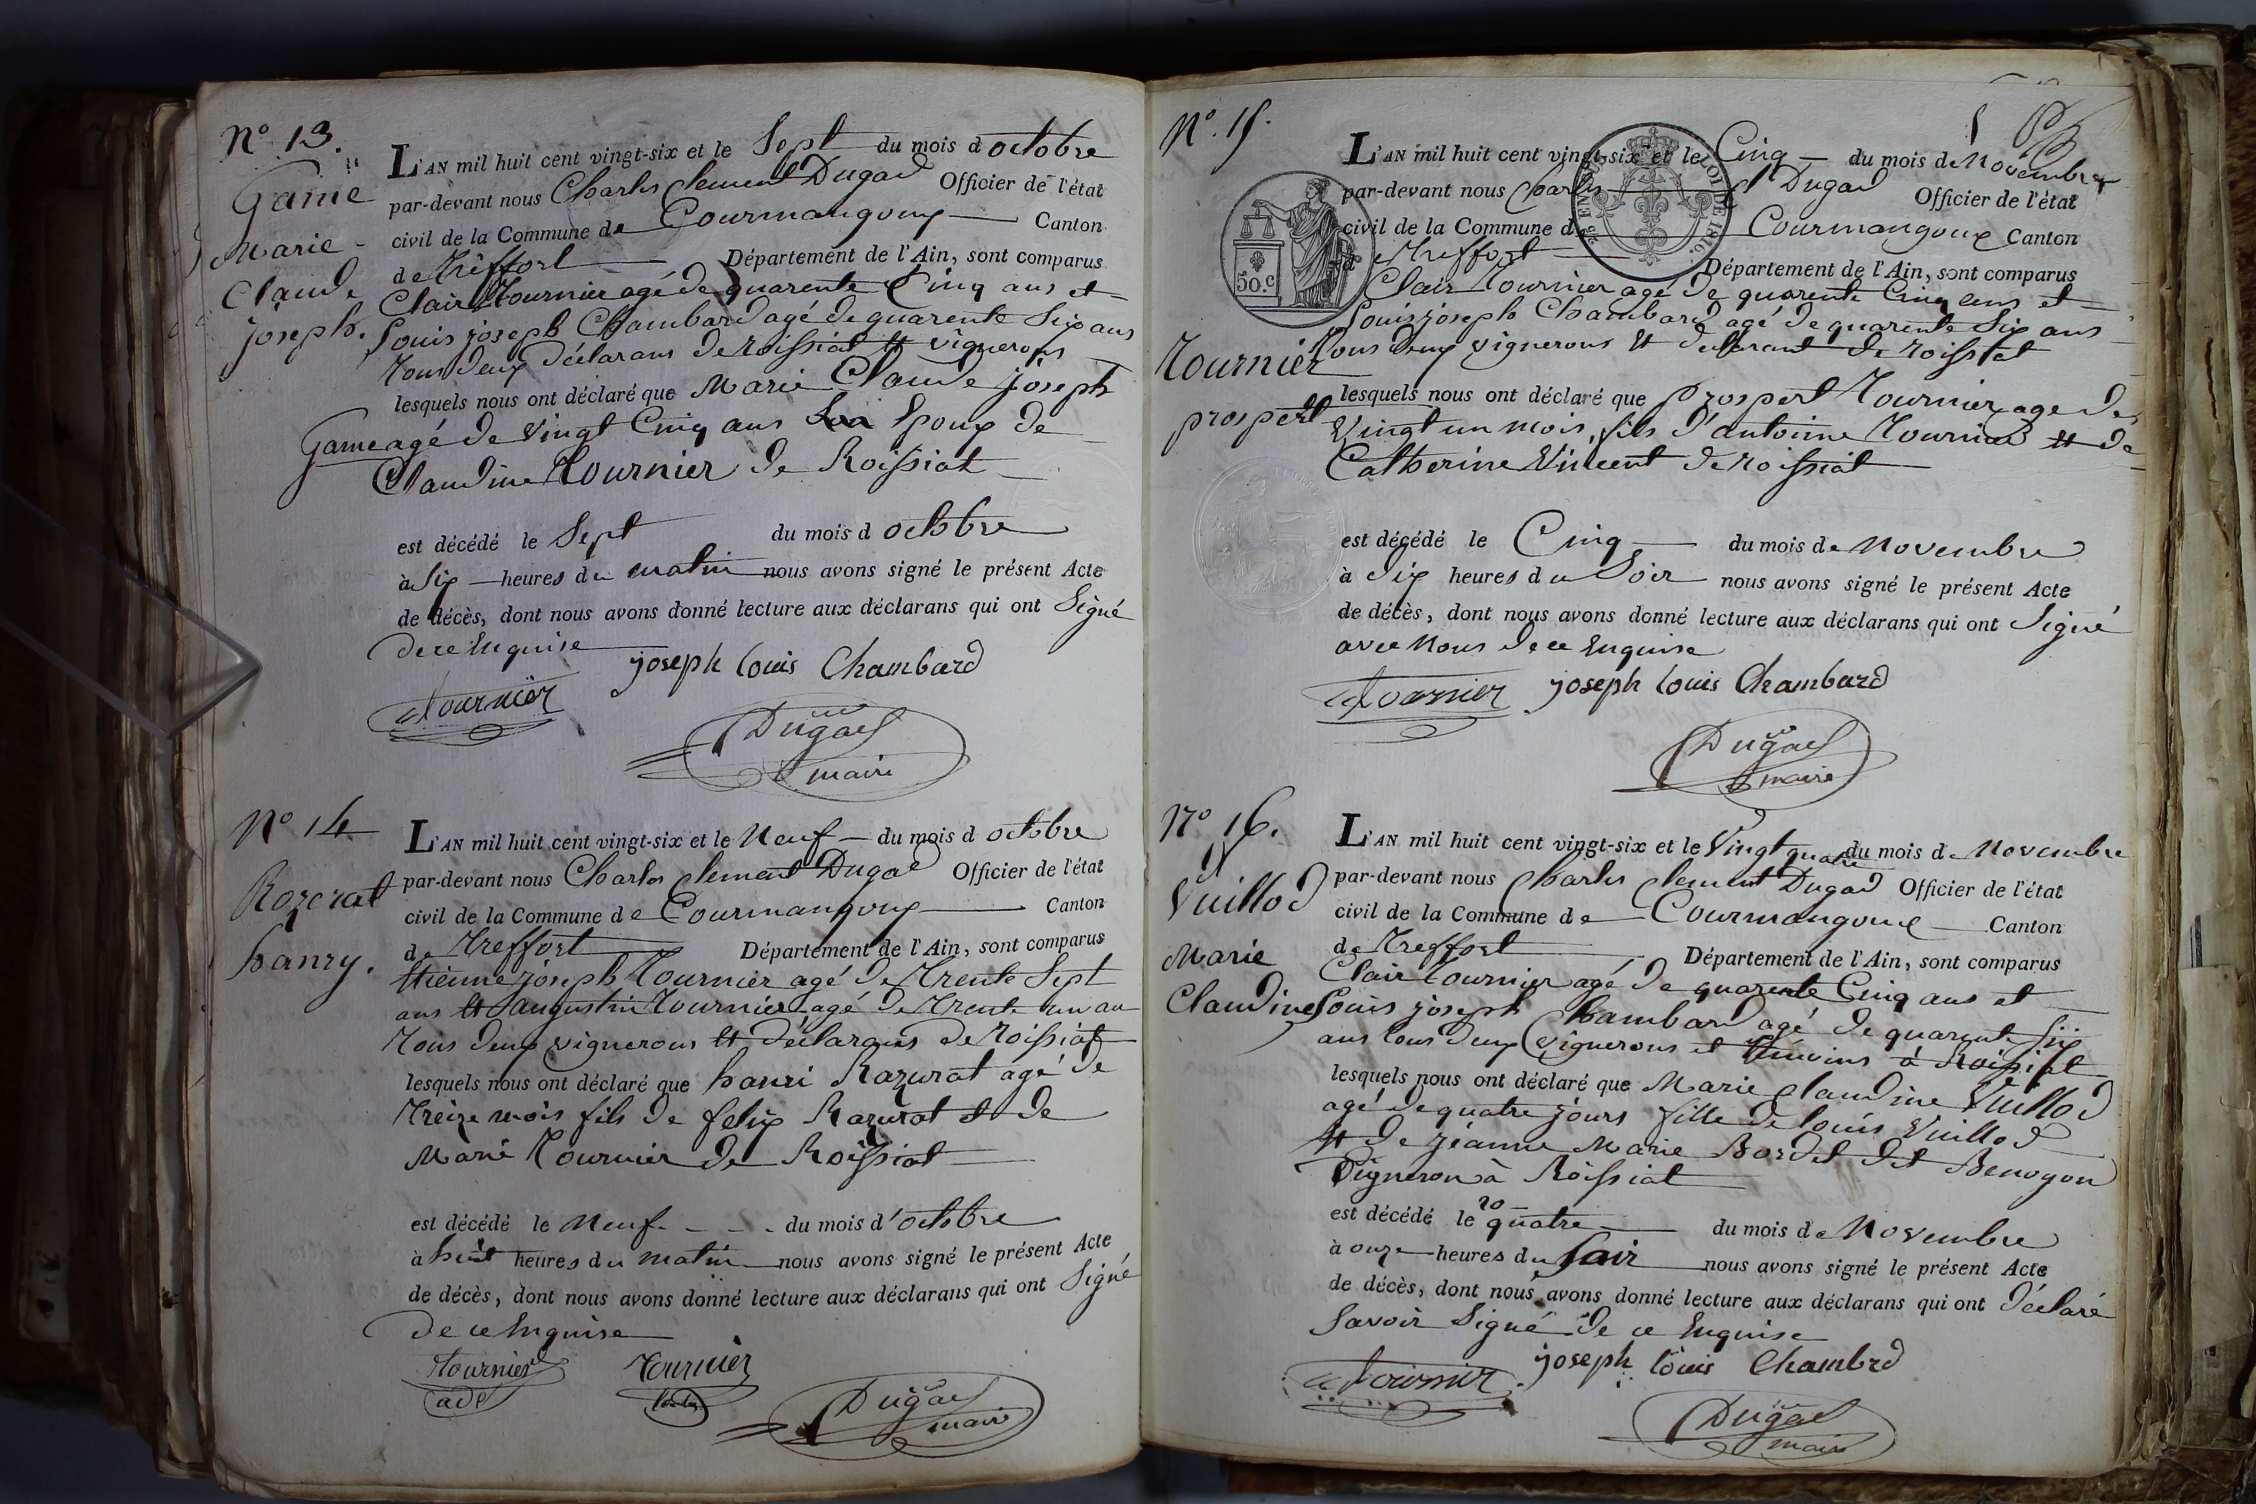 N° 13.
Game
Marie
Claude
joseph.
L'AN mil huit cent vingt-six et le Sept du mois d octobre
par-devant nous Charles Clement Dugad Officier de l'état
civil de la Commune de Courmangoux Canton
de Treffort Département de l'Ain, sont comparus
Clair Tournier agé de quarente Cinq ans et
Louis joseph Chambard agé de quarente Six ans
Tous deux Déclarans de roissiat et vignerons
lesquels nous ont déclaré que Marie Claude joseph
Game agé de Vingt Cinq ans Epoux de
Claudine Tournier de Roissiat
est décédé le Sept du mois d octobre
à Six heures du matin nous avons signé le présent Acte
de décès, dont nous avons donné lecture aux déclarans qui ont Signé
de ce Enquise
joseph louis Chambard
Tournier
Dugad
maire
N° 14
Rozerat
hanry.
L'AN mil huit cent vingt-six et le Neuf du mois d octobre
par-devant nous Charles Clement Dugad Officier de l'état
civil de la Commune de Courmangoux Canton
de Treffort Département de l'Ain, sont comparus
Etienne joseph Tournier agé de Trente Sept
ans et augustin Tournier agé de Trente un an
Tous deux vignerons et déclarans de Roissiat
lesquels nous ont déclaré que hanri Razurat agé de
Treize mois fils de felix Razurat et de
Marie Tournier de Roissiat
est décédé le Neuf du mois d'octobre
à huit heures du matin nous avons signé le présent Acte
de décès, dont nous avons donné lecture aux déclarans qui ont Signé
de ce Enquise
Tournier Tournier
ade
Dugad
maire
N° 15.
Tournier
prospert
L'AN mil huit cent vingt-six et le Cinq du mois de Novembre
par-devant nous Charles C Dugad Officier de l'état
civil de la Commune d Courmangoux Canton
de Treffort Département de l'Ain, sont comparus
50.c
LOI DE 1816.
Clair Tournier agé de quarente Cinq ans et
Louis joseph Chambard agé de quarente Six ans
Tous deux vignerons et declarant de roissiat
lesquels nous ont déclaré que prospert Tournier age de
Vingt un mois, fils d'antoine Tournier et de
Catherine Vincent de roissiat
est décédé le Cinq du mois de Novembre
à Six heures du Soir nous avons signé le présent Acte
de décès, dont nous avons donné lecture aux déclarans qui ont Signé
avec Nous de ce Enquise
Tournier joseph louis Chambard
Dugad
maire
N° 16.
Vuillod
Marie
Claudine
L'AN mil huit cent vingt-six et le Vingt quatre du mois de Novembre
par-devant nous Charles Clement Dugad Officier de l'état
civil de la Commune de Courmangoux Canton
de Treffort Département de l'Ain, sont comparus
Clair Tournier agé de quarente Cinq ans et
Louis joseph Chambard agé de quarente Six
ans tous deux Vignerons et témoins à Roissiat
lesquels nous ont déclaré que Marie Claudine Vuillod
agé de quatre jours fille de louis Vuillod
et de jéanne Marie Bordet dit Benogon
Vigneron à Roissiat
est décédé le 20 quatre du mois de Novembre
à onze heures du Soir nous avons signé le présent Acte
de décès, dont nous avons donné lecture aux déclarans qui ont déclaré
Savoir Signé de ce Enquise
Tournier joseph louis Chambrd
Dugad
maire